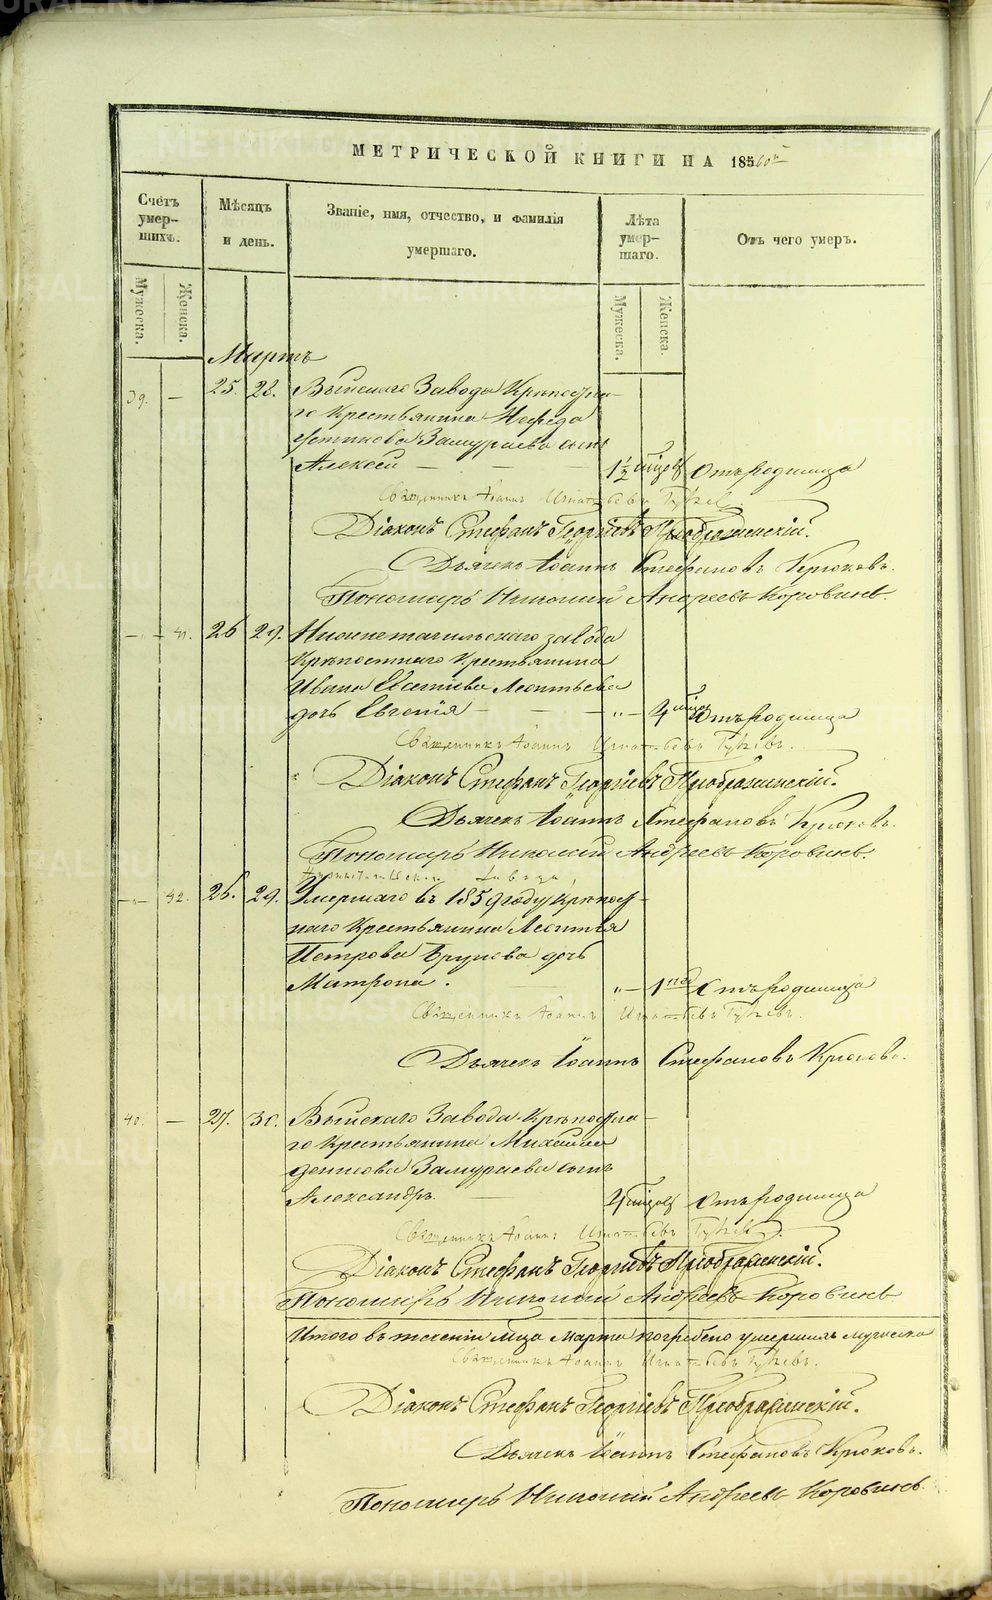 МЕТРИЧЕСКОЙ КНИГИ НА 1860й
Счетъ умер-шихъ.
Мѣсяцъ и день.
Званіе, имя, отчество, и фамилія умершаго.
Лѣта умер-шаго.
Отъ чего умеръ.
Мужеска.
Женска.
Мужеска.
Женска.
Мартъ
39. — 25. 28. Выйскаго Завода Крѣпостна-
го Крестьянина
Замураева сынъ
Алексей — — — 1½ мѣсяц Отъ родимца
Священникъ Іоаннъ Игнатьевъ
Діаконъ Стефанъ Георгіевъ Преображенскій.
Дьячекъ Іоаннъ Стефановъ Крюковъ.
Пономарь Николай Андреевъ Коровинъ.
— 41. 26 29. Нижнетагильскаго завода
Крѣпостнаго Крестьянина
Ивана Леонтьева
дочь Евгенія — — — „ — 4 мѣсяц Отъ родимца
Священникъ Іоаннъ Игнатьевъ
Діаконъ Стефанъ Георгіевъ Преображенскій.
Дьячекъ Іоаннъ Стефановъ Крюковъ.
Пономарь Николай Андреевъ Коровинъ.
завода,
— 42. 26. 29. Умершаго въ 1859 году Крѣпост-
наго Крестьянина Леонтья
Петрова дочь
Матрона. — „ — 1 нед Отъ родимца
Священникъ Іоаннъ Игнатьевъ
Дьячекъ Іоаннъ Стефановъ Крюковъ.
40. — 27. 30. Выйскаго Завода Крѣпостна-
го Крестьянина Михаила
Денисова Замураева сынъ
Александръ. — 4 мѣсяц Отъ родимца
Священникъ Іоаннъ Игнатьевъ
Діаконъ Стефанъ Георгіевъ Преображенскій.
Пономарь Николай Андреевъ Коровинъ
Итого въ теченіи м-ца Марта погребено умершихъ мужеска
Священникъ Іоаннъ Игнатьевъ
Діаконъ Стефанъ Георгіевъ Преображенскій.
Дьячекъ Іоаннъ Стефановъ Крюковъ.
Пономарь Николай Андреевъ Коровинъ
METRIKI.GASO-URAL.RU